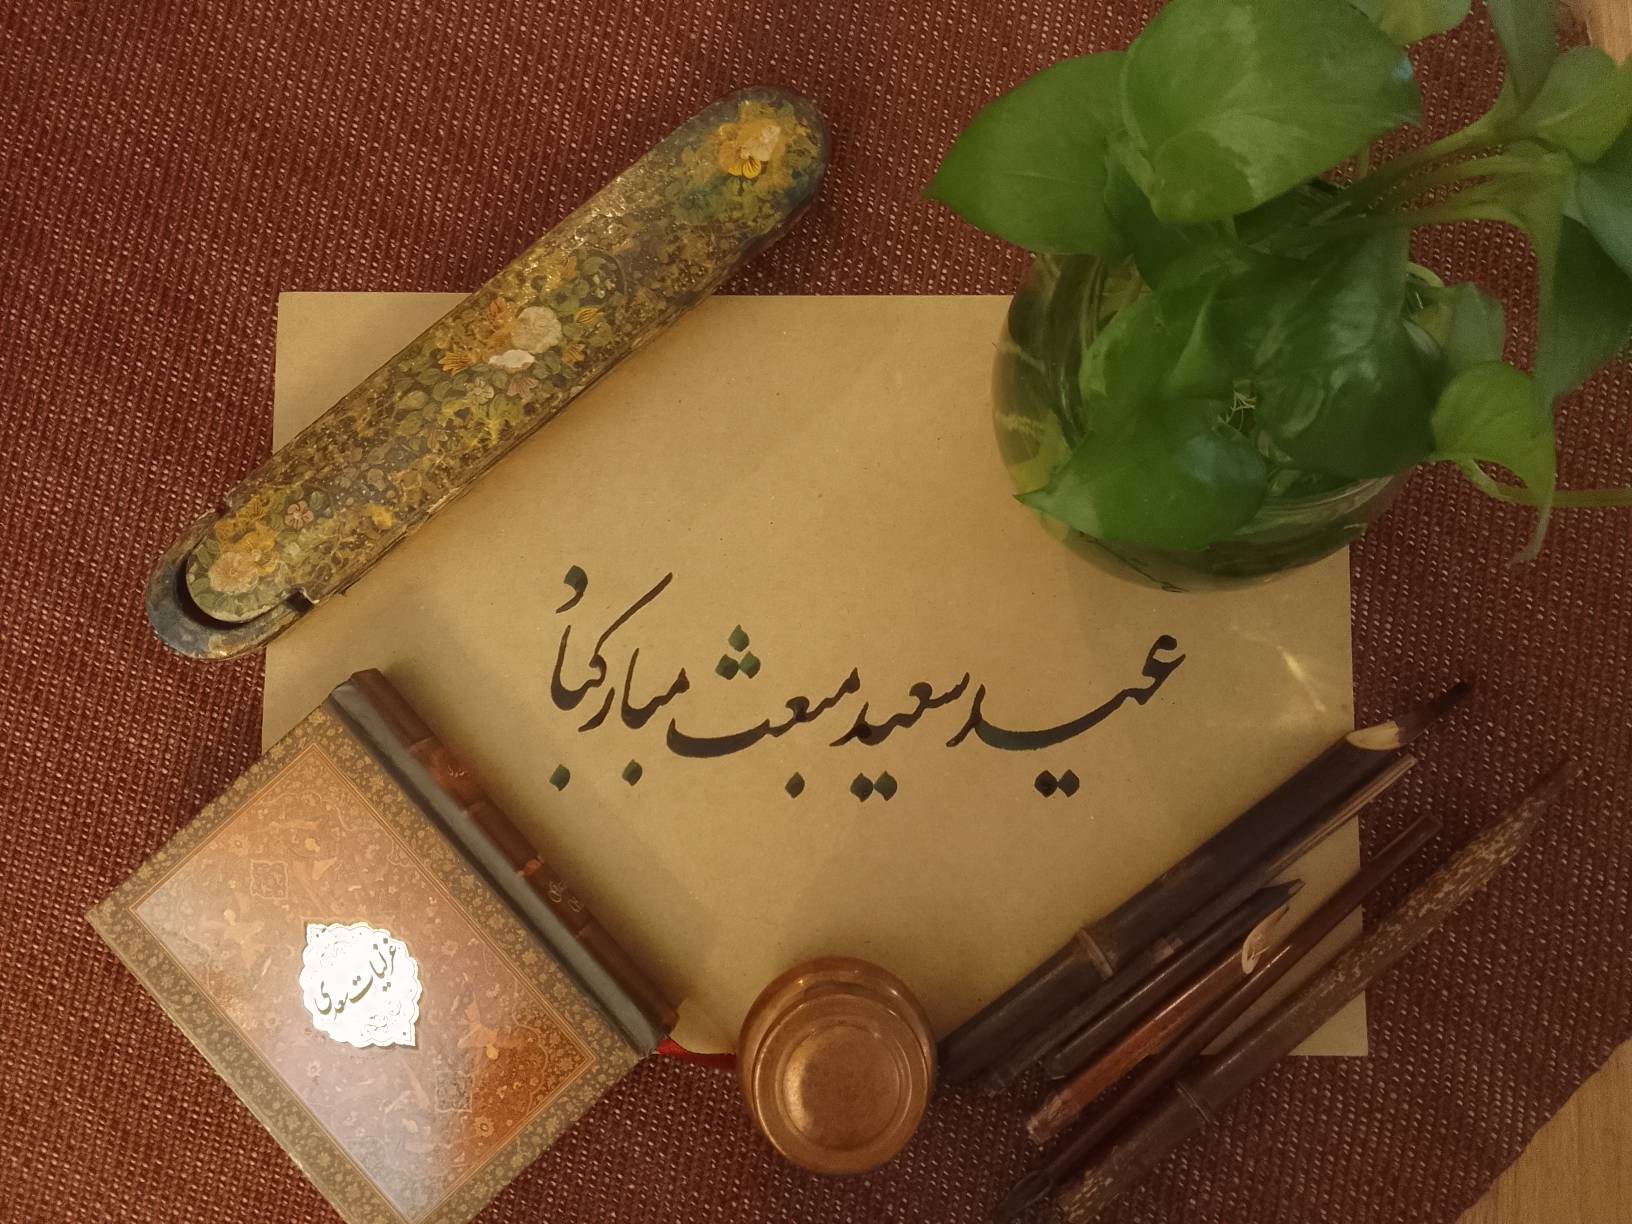 عید سعید مبعث مبارکباد
غزلیات سعدی